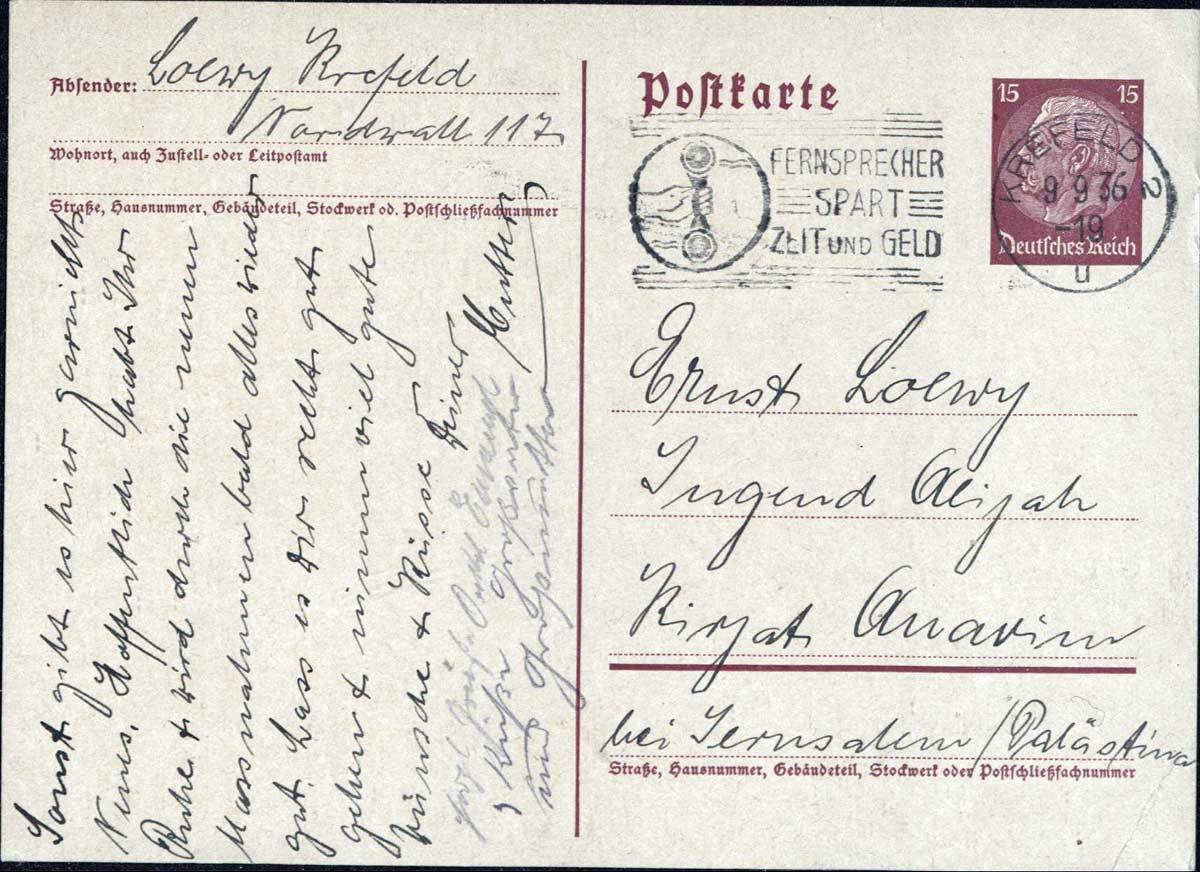 Absender: Loewy Krefeld
Nordwall 117
Wohnort, auch Zustell- oder Leitpostamt
Straße, Hausnummer, Gebäudeteil, Stockwerk od. Postschließfachnummer
Sonst gibt es hier garnichts
Neues. Hoffentlich habt Ihr
Ruhe & wird durch die neuen
Massnahmen bald alles wieder
gut. Lass es Dir recht gut
gehen & nimm viel gute
Wünsche & Küsse Deiner
Mutter
Grüße
Küße Großvater
und Großmutter
Postkarte
FERNSPRECHER
SPART
ZEIT UND GELD
15 15
Deutsches Reich
KREFELD 2
9 9 36
-19
u
Ernst Loewy
Jugend Alijah
Kirjat Anavim
bei Jerusalem / Palästina
Straße, Hausnummer, Gebäudeteil, Stockwerk oder Postschließfachnummer